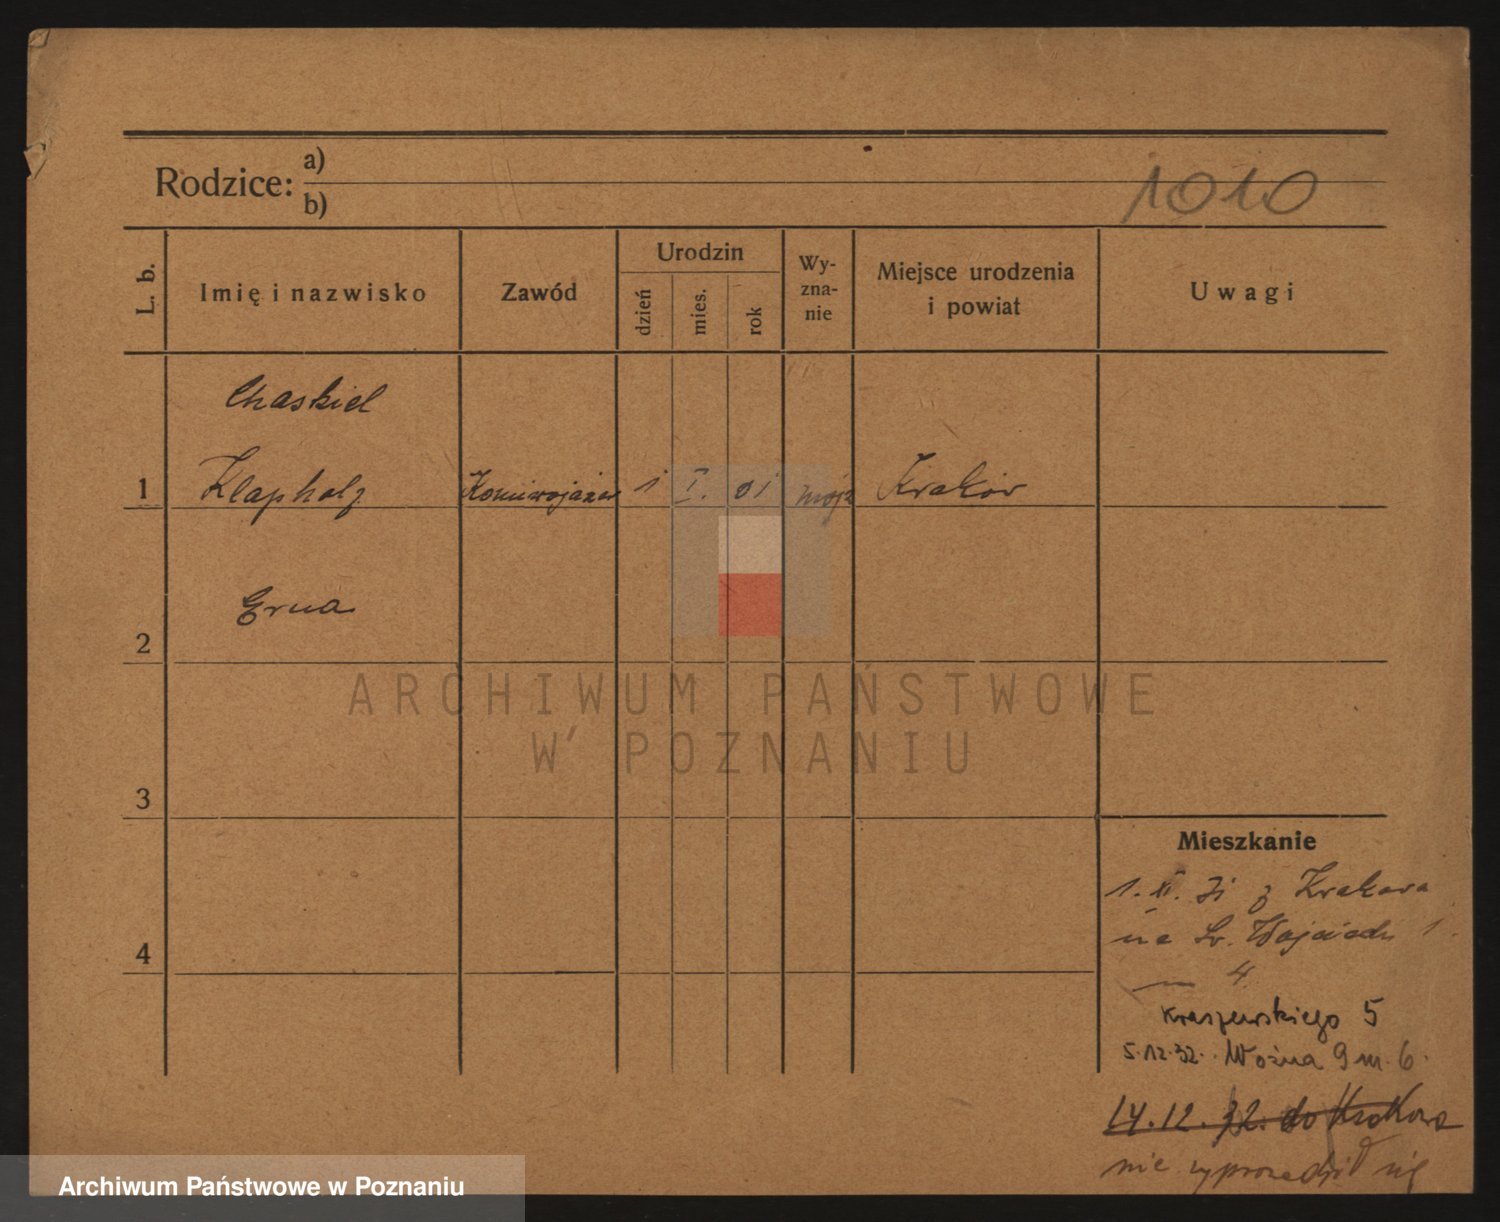 Rodzice: a)
b)
1010
L. b.
Imię i nazwisko
Zawód
Urodzin
dzień
mies.
rok
Wy-
zna-
nie
Miejsce urodzenia
i powiat
Uwagi
Chaskiel
1 Klapholz Komiwojażer 1 I. 01 mojż Kraków
Erna
2
3
4
Mieszkanie
1. XI. 31 z Krakowa
na Św. Wojciech 1.
m 4
Kraszewskiego 5
5.12.32. Woźna 9 m. 6.
14.12.32. do Krakowa
nie wyprowadził się
ARCHIWUM PAŃSTWOWE
W POZNANIU
Archiwum Państwowe w Poznaniu